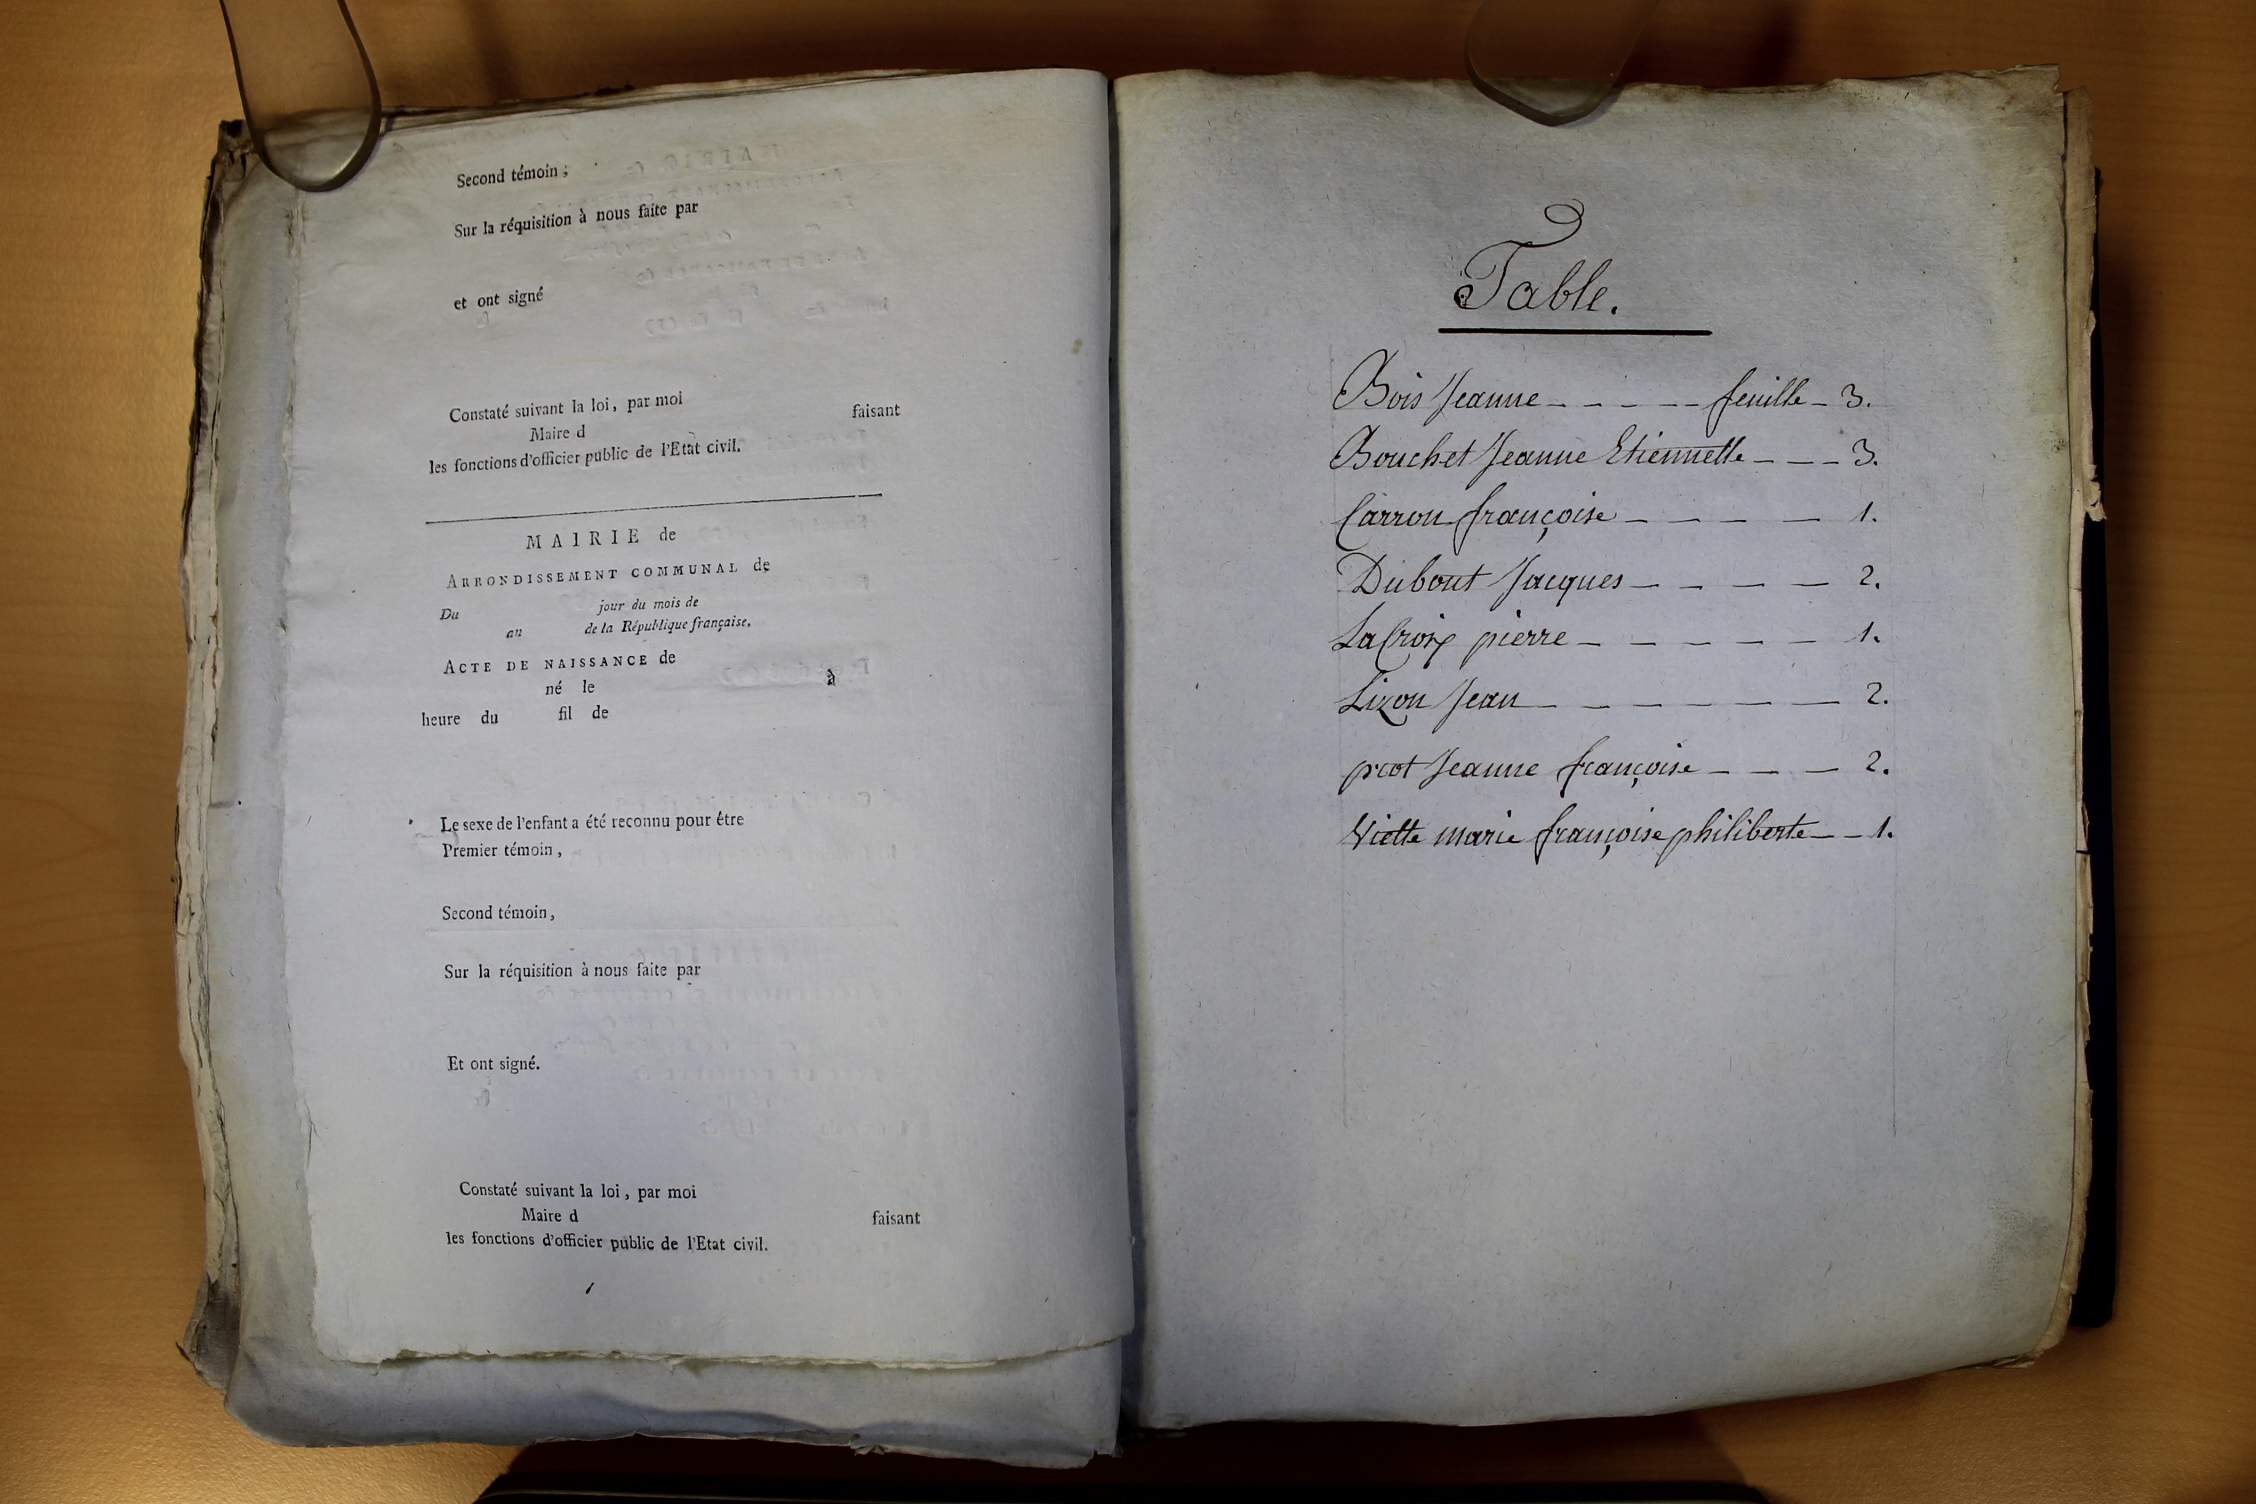 Second témoin ;
Sur la réquisition à nous faite par
et ont signé
Constaté suivant la loi, par moi
Maire d faisant
les fonctions d'officier public de l'Etat civil.
MAIRIE de
ARRONDISSEMENT COMMUNAL de
Du jour du mois de
an de la République française.
ACTE DE NAISSANCE de
né le à
heure du fil de
Le sexe de l'enfant a été reconnu pour être
Premier témoin,
Second témoin,
Sur la réquisition à nous faite par
Et ont signé.
Constaté suivant la loi, par moi
Maire d faisant
les fonctions d'officier public de l'Etat civil.
Table.
Bois Jeanne - - - - - feuille - 3.
Bouchet Jeanne Etiennette - - - 3.
Carron françoise - - - - 1.
Dubout Jacques - - - - 2.
LaCroix pierre - - - - - 1.
Lizon Jean - - - - - - 2.
prot Jeanne françoise - - - 2.
Viette marie françoise philiberte - - 1.